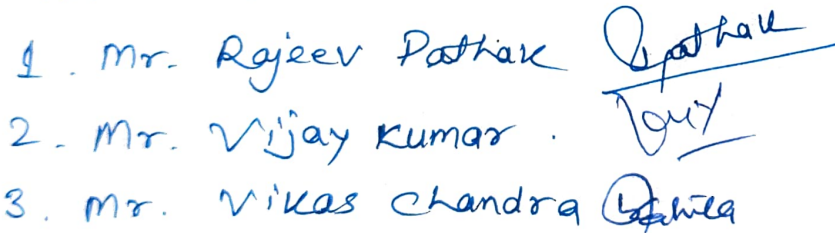 1. Mr. Rajeev Pathak Pathak
2. Mr. Vijay Kumar.
3. Mr. Vikas Chandra